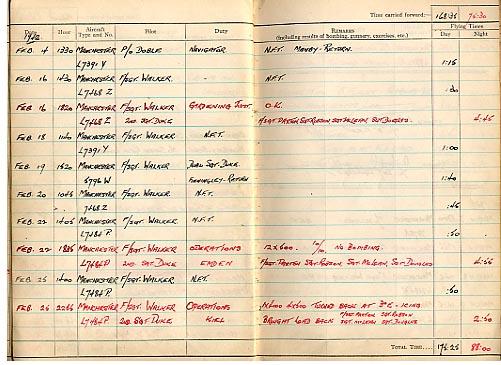 Time carried forward:— 168·35 75·30
Date 1942 Hour Aircraft Type and No. Pilot Duty Remarks (including results of bombing, gunnery, exercises, etc.) Flying Times Day Night
FEB. 4 1330 MANCHESTER P/O DOBLE NAVIGATOR N.F.T. MANBY-RETURN.
L7391 Y 1·15
FEB. 16 1430 MANCHESTER F/SGT. WALKER. N.F.T.
L7468 Z ·30
FEB. 16 1820 MANCHESTER F/SGT. WALKER GARDENING O.K.
L7468 Z 2nd SGT DUKE F/SGT PAXTON SGT ROBSON SGT McLEAN, SGT DOUGLAS 4·45
FEB. 18 1140 MANCHESTER F/SGT. WALKER N.F.T.
L7391 Y 1·00
FEB. 19 1520 MANCHESTER F/SGT. WALKER DUAL SGT. DUKE
W FINNINGLEY-RETURN 1·40
FEB. 20 1045 MANCHESTER F/SGT. WALKER N.F.T.
7468 Z ·45
FEB. 22 1405 MANCHESTER F/SGT. WALKER N.F.T.
L7484 P. ·50
FEB. 22 MANCHESTER F/SGT. WALKER OPERATIONS 12x600. 10/10 NO BOMBING.
L7484 P 2nd SGT DUKE EMDEN F/SGT. PAXTON SGT. ROBSON, SGT. McLEAN, SGT. DOUGLAS 4·55
FEB. 25 1400 MANCHESTER F/SGT. WALKER N.F.T.
L7484 P. ·50
FEB. 25 MANCHESTER F/SGT. WALKER OPERATIONS TURNED BACK AT 3°E - ICING
L7484 P. 2nd SGT DUKE KIEL BROUGHT LOAD BACK F/SGT. PAXTON SGT. ROBSON SGT. McLEAN SGT. DOUGLAS 2·50
Total Time.... 175·25 88·00